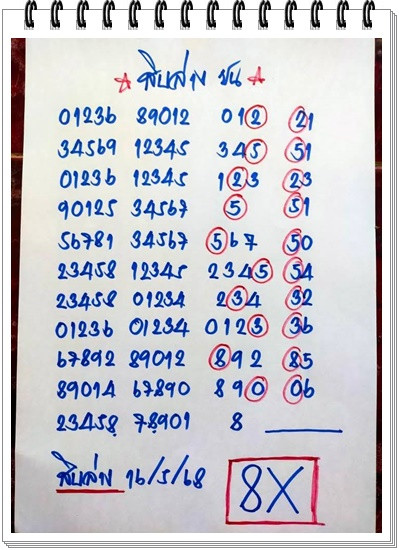 ☆ สิบล่าง ชน ☆
01236 89012 012 21
34569 12345 345 51
01236 12345 123 23
90125 34567 5 51
56781 34567 567 50
23458 12345 2345 54
23458 01234 234 32
01236 01234 0123 36
67892 89012 892 85
89014 67890 890 06
23458 78901 8 ____
สิบล่าง 16/5/68 8X